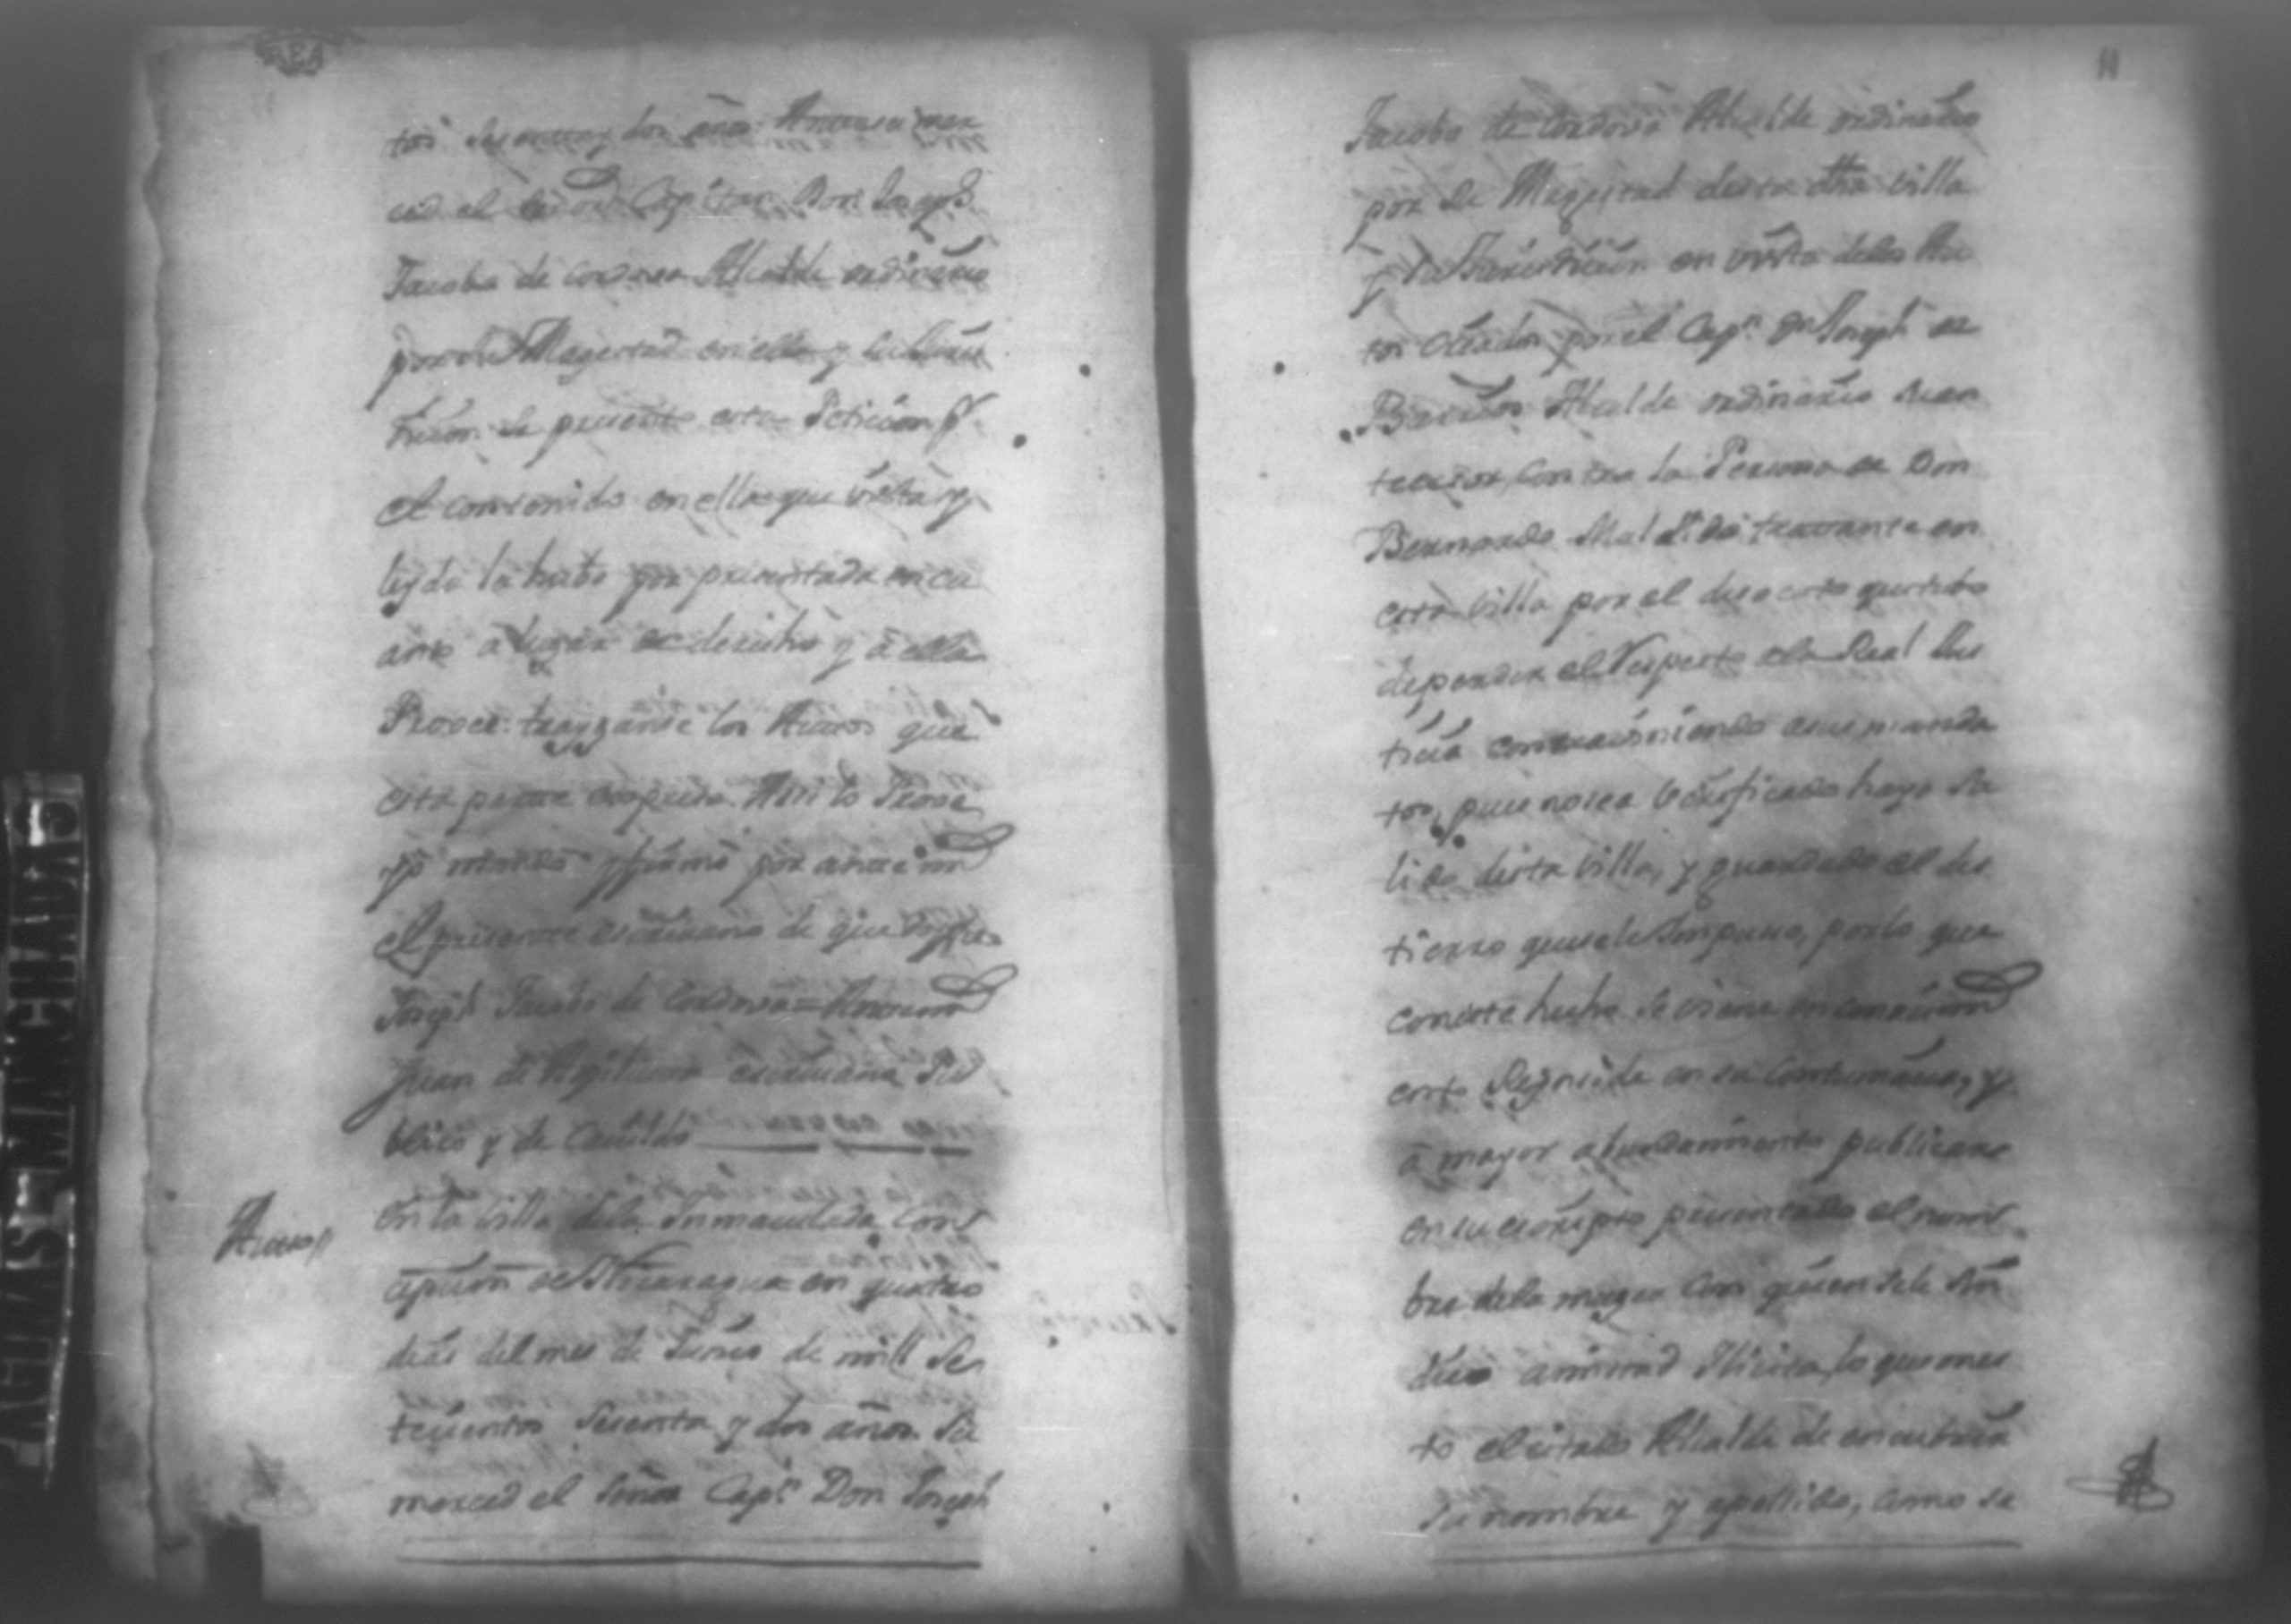 tos sesenta y dos años. Ante su mer
ced el señor Capitan Don Joseph
Jacobo de Cordova Alcalde ordinario
por su Magestad en ella y su Juris
ticion se presento esta Peticion pr
el contenido en ella que vista y
leyda la hubo por presentada en cu
anto a lugar de derecho y a ella
Proveo: traygانse los Autos que
esta parte expresa. Assi lo Prove
yó mandó y firmó por ante mi
el presente escrivano de que doy fee
Joseph Jacobo de Cordova = Ante mi
Juan de escrivano Pu
blico y de Cavildo
Auto//
En la villa de la Inmaculada Con
cepcion de Nicaragua en quatro
dias del mes de Junio de mill Se
tecientos sesenta y dos años. Su
merced el Señor Capn Don Joseph
REA
11
Jacobo de Cordova Alcalde ordinario
por su Magestad desta dha villa
y su Jurisdicion en vista delos Au
tos criados por el Capn Dn Joseph de
Barrios Alcalde ordinario su an
tecesor contra la Persona de Don
Bernardo Maldo tratante en
esta villa por el desacato que tubo
de perder el respecto a la Real Jus
ticia contraviniendo a sus manda
tos, pues no sea verificado haya sa
lido desta villa, y guardado el des
tierro que se le impuso, por lo que
con este hecho se viene en conocimto
esto Regnside en su contumacia, y
a mayor abundamiento publicase
en su escripto presentado el nom
bre de la muger con quien se le in
dició amistad Ilicita, lo que mes
to el citado Alcalde de encubrir
su nombre y apellido, como se
AGINAS MANCHADAS